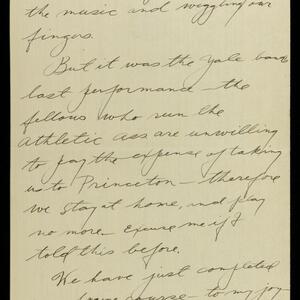 the music and wiggling our
fingers.
But it was the Yale band
last performance - the
fellows who run the
Athletic Ass are unwilling
to pay the expense of taking
us to Princeton - therefore
we stay at home, and play
no more. Excuse me if I
told this before.
We have just completed
course - to my joy